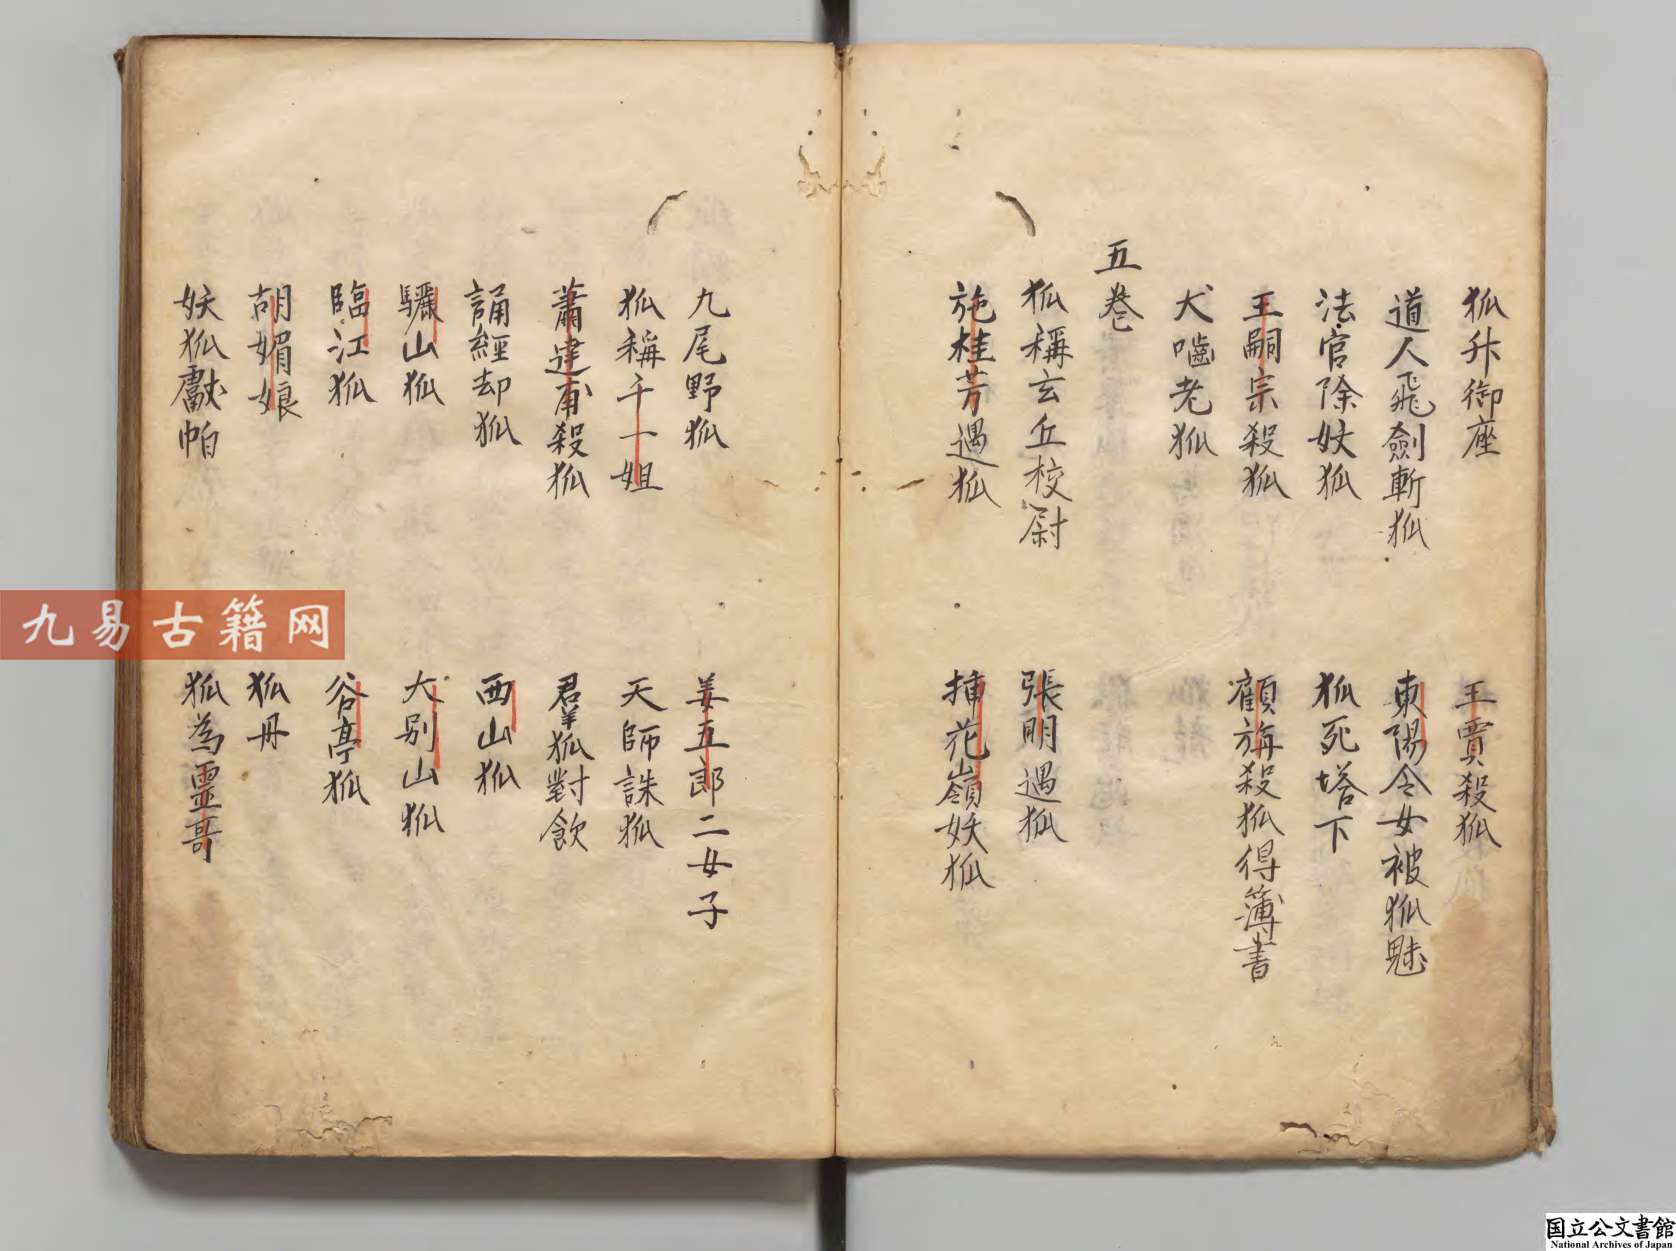 狐升御座
王賈殺狐
道人飛劍斬狐
東陽令女被狐魅
法官除妖狐
狐死塔下
王嗣宗殺狐
顧旃殺狐得簿書
犬嚙老狐
五卷
狐稱玄丘校尉
張明遇狐
施桂芳遇狐
捕花嶺妖狐
九尾野狐
姜五郎二女子
狐稱千一姐
天師誅狐
蕭達甫殺狐
群狐對飲
誦經却狐
西山狐
驪山狐
大别山狐
臨江狐
谷亭狐
胡媚娘
狐丹
妖狐獻帕
狐為靈哥
九易古籍网
国立公文書館
National Archives of Japan